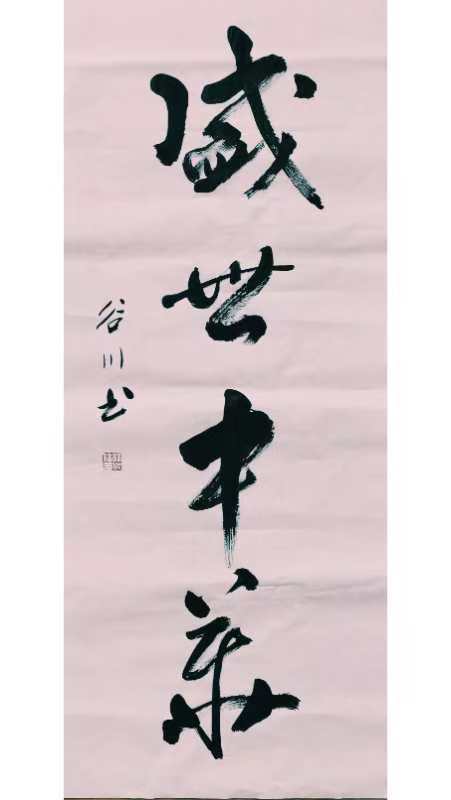 盛世中華
谷川书